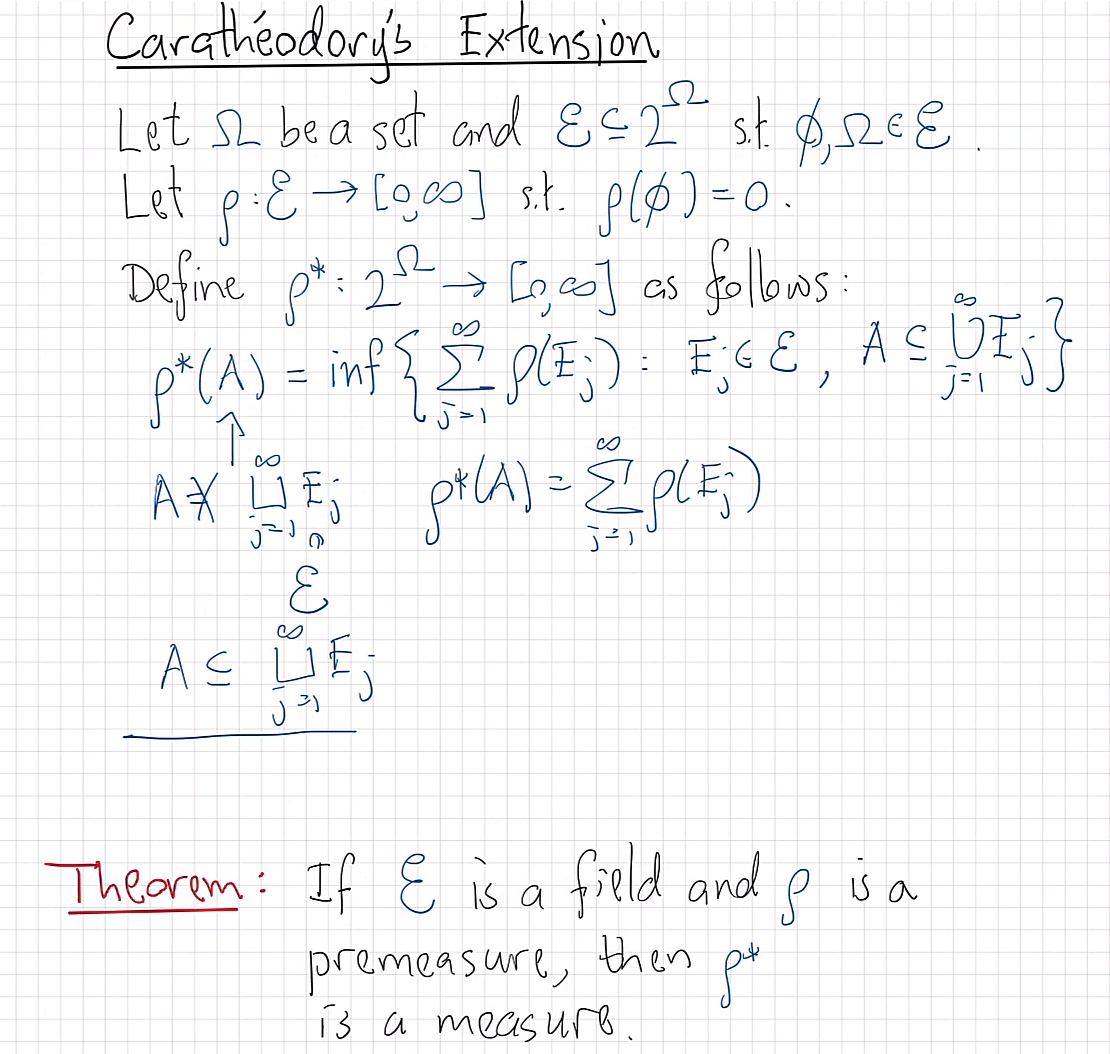 Carathéodory's Extension
Let Ω be a set and ℰ ⊆ 2^Ω s.t. ϕ, Ω ∈ ℰ.
Let ρ: ℰ → [0, ∞] s.t. ρ(ϕ) = 0.
Define ρ*: 2^Ω → [0, ∞] as follows:
ρ*(A) = inf { ∑_{j=1}^∞ ρ(E_j) : E_j ∈ ℰ, A ⊆ ⋃_{j=1}^∞ E_j }
↑
A ≠ ⨆_{j=1}^∞ E_j ρ*(A) = ∑_{j=1}^∞ ρ(E_j)
∩
ℰ
A ⊆ ⨆_{j=1}^∞ E_j
Theorem: If ℰ is a field and ρ is a
premeasure, then ρ*
is a measure.